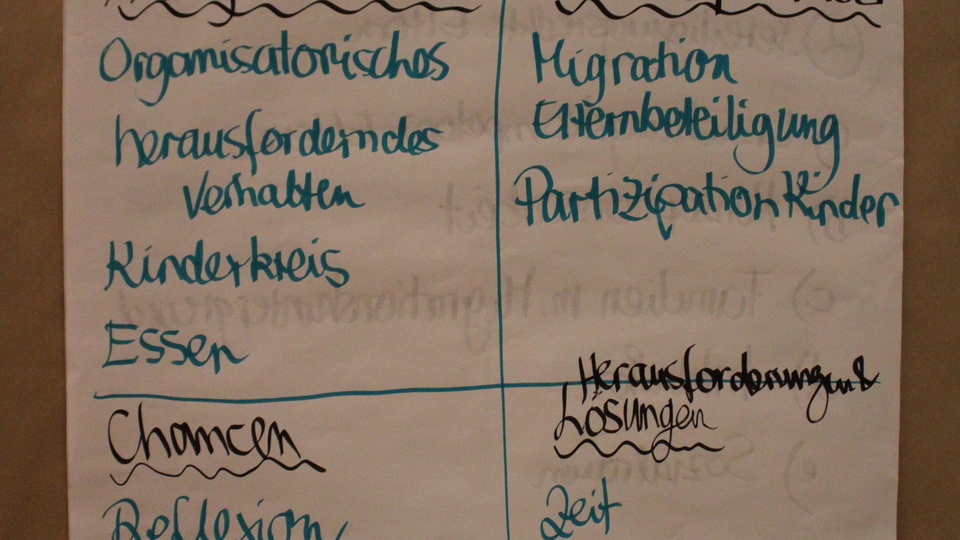 Organisatorisches
herausforderndes
Verhalten
Kinderkreis
Essen
Migration
Elternbeteiligung
Partizipation Kinder
Chancen
Reflexion
Herausforderungen &
Lösungen
Zeit